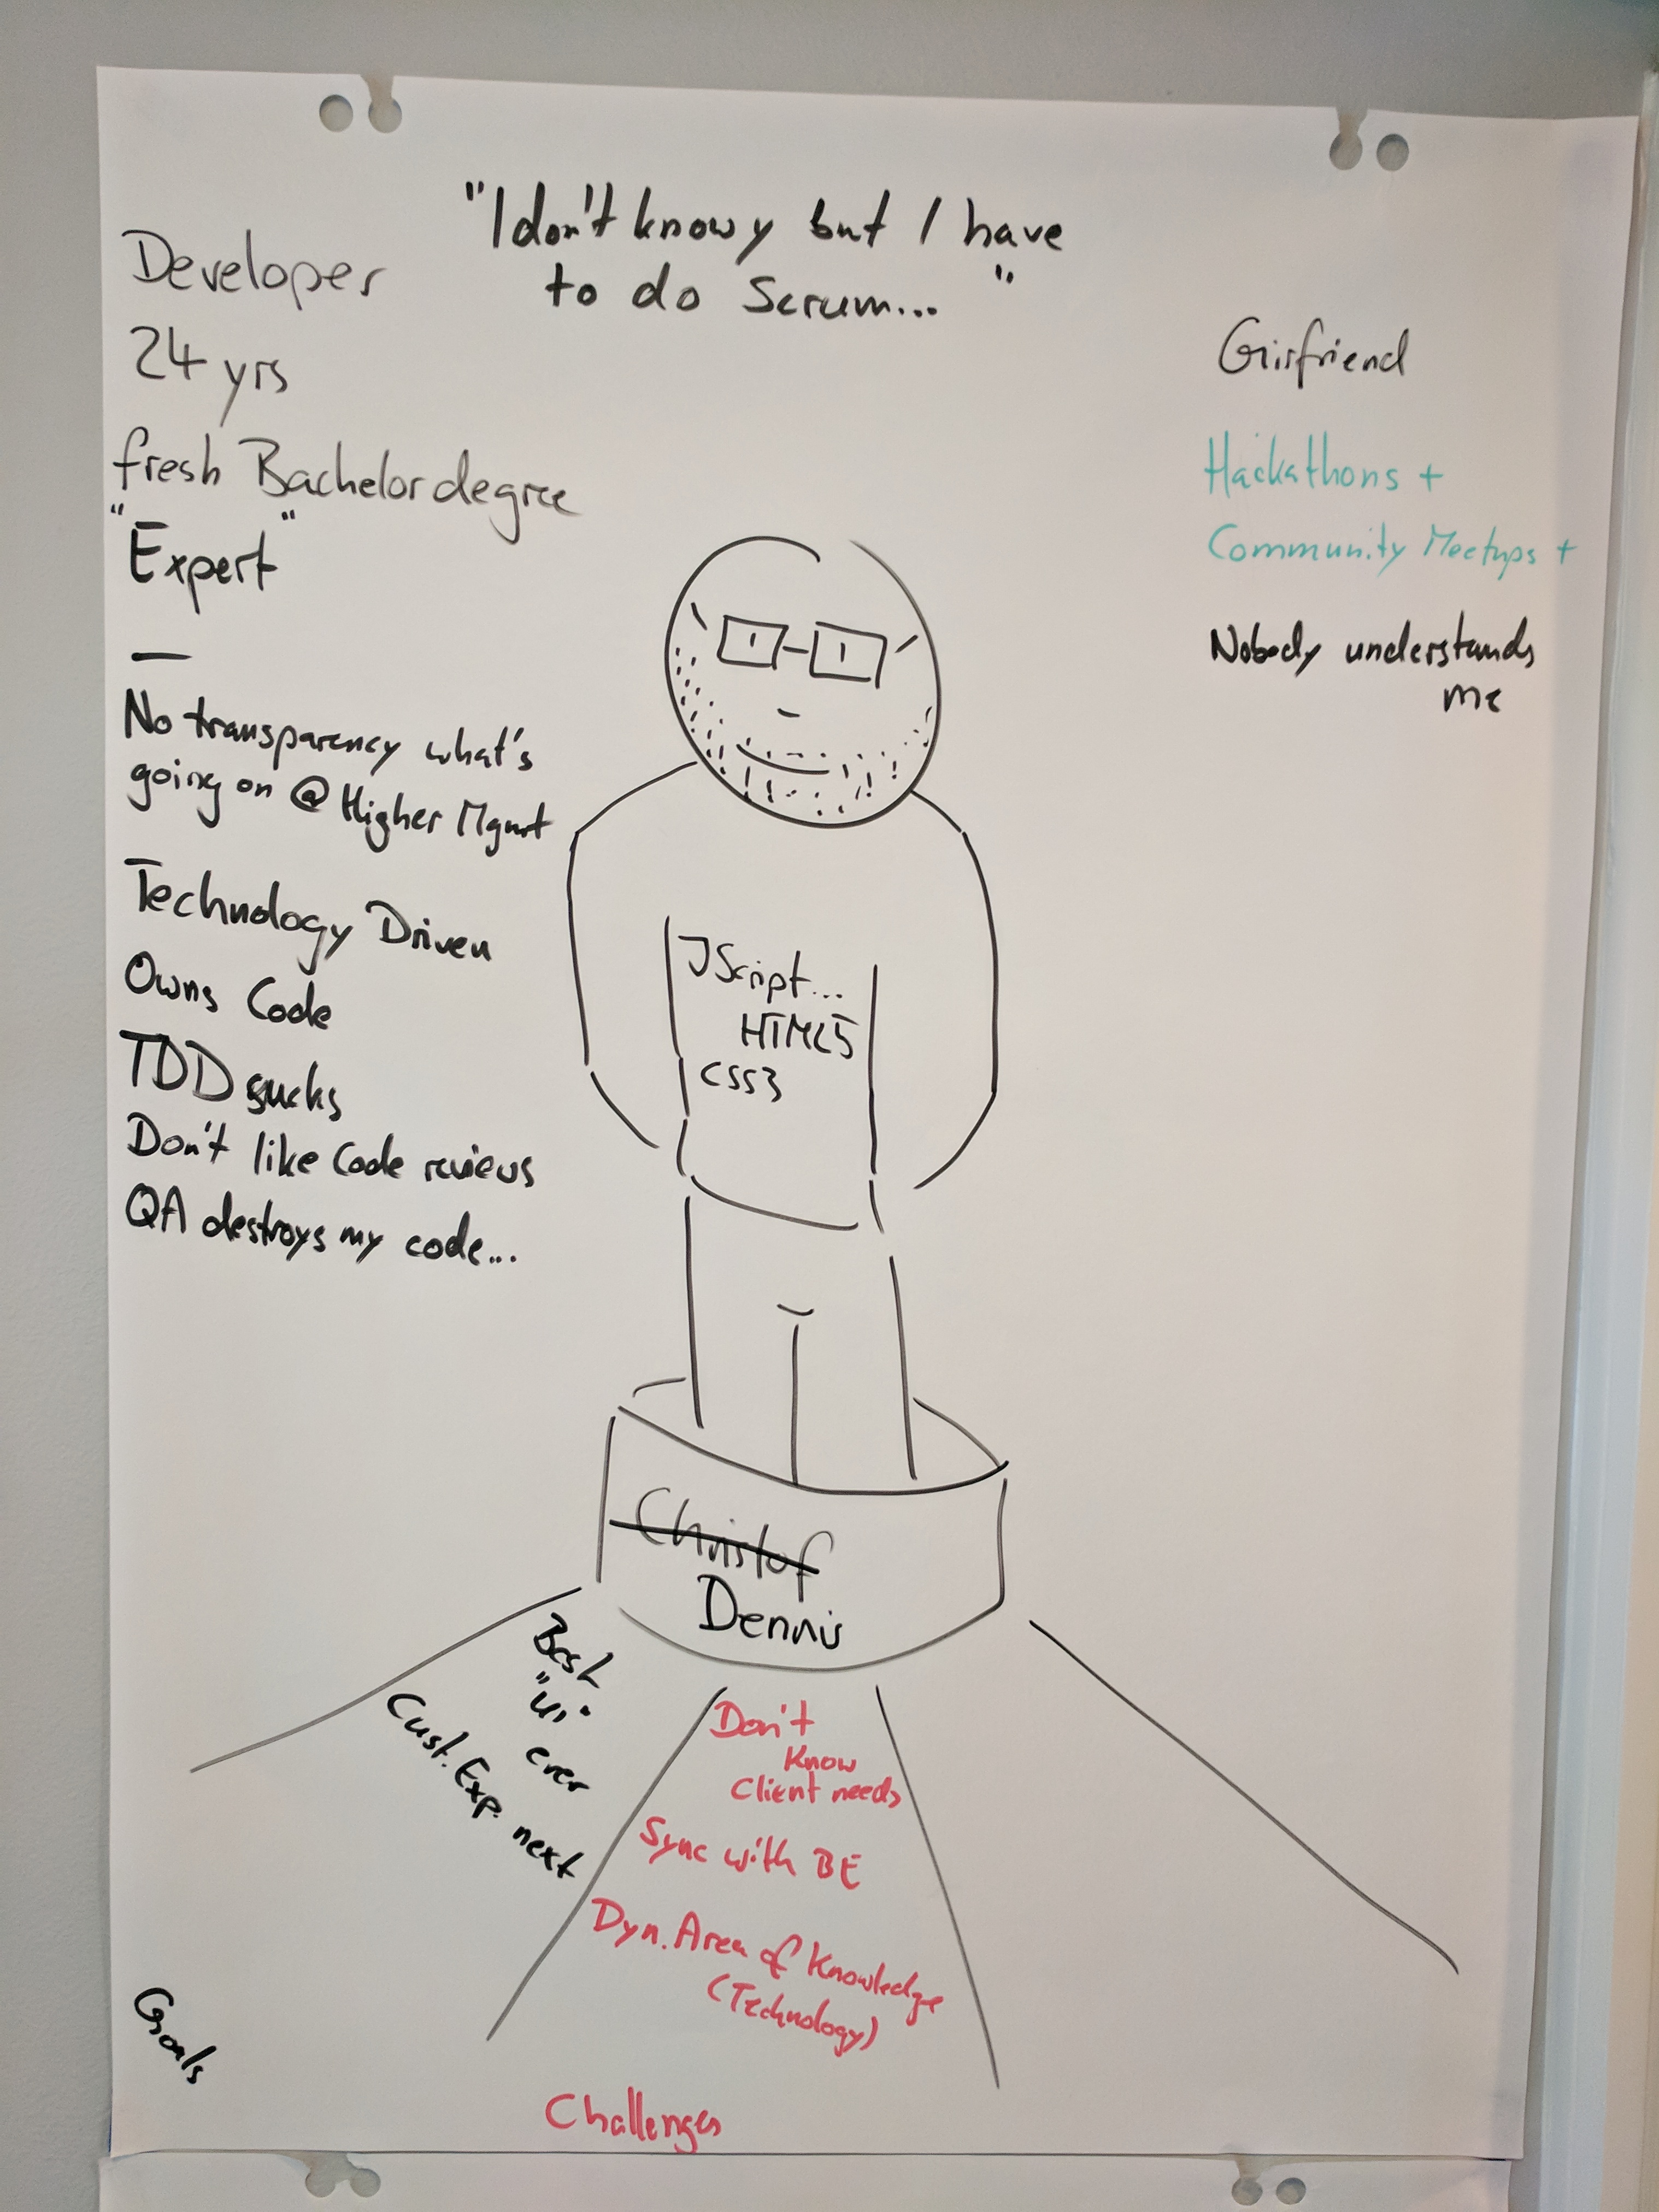 "I don't knowy but I have
to do Scrum... "
Developer
24 yrs
fresh Bachelor degree
"Expert"
—
No transparency what's
going on @ Higher Mgmt
—
Technology Driven
Owns Code
TDD sucks
Don't like Code reviews
QA destroys my code...
Girlfriend
Hackathons +
Community Meetups +
Nobody understands
me
JScript...
HTML5
CSS3
Christof
Dennis
Best
"UI"
ever
Cust. Exp. next
Goals
Don't
Know
Client needs
Sync with BE
Dyn. Area of Knowledge
(Technology)
Challenges